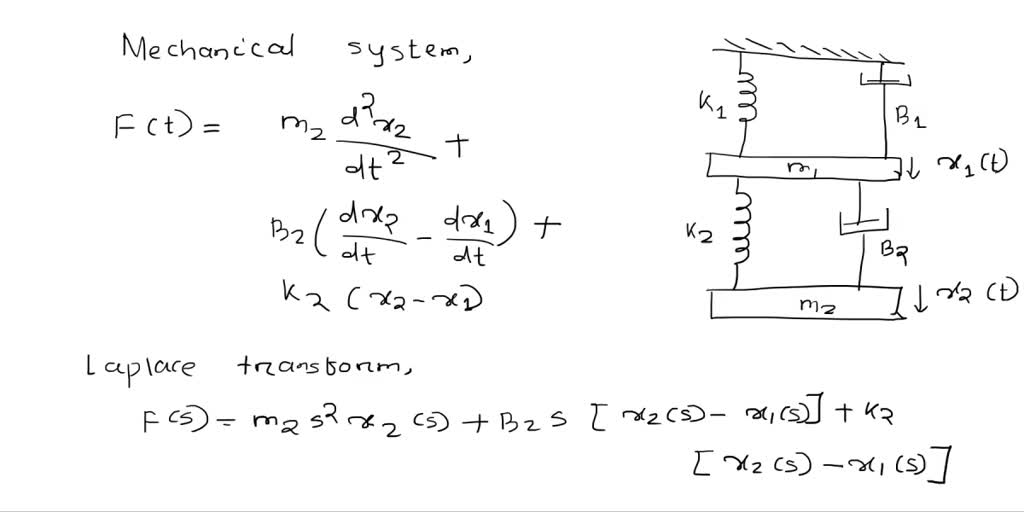 Mechanical system,
F(t) = m2 d²x2/dt² +
B2 (dx2/dt - dx1/dt) +
K2 (x2 - x1)
K1
B1
m1
x1(t)
K2
B2
m2
x2(t)
Laplace transform,
F(s) = m2 s² x2(s) + B2 s [x2(s) - x1(s)] + K2
[x2(s) - x1(s)]